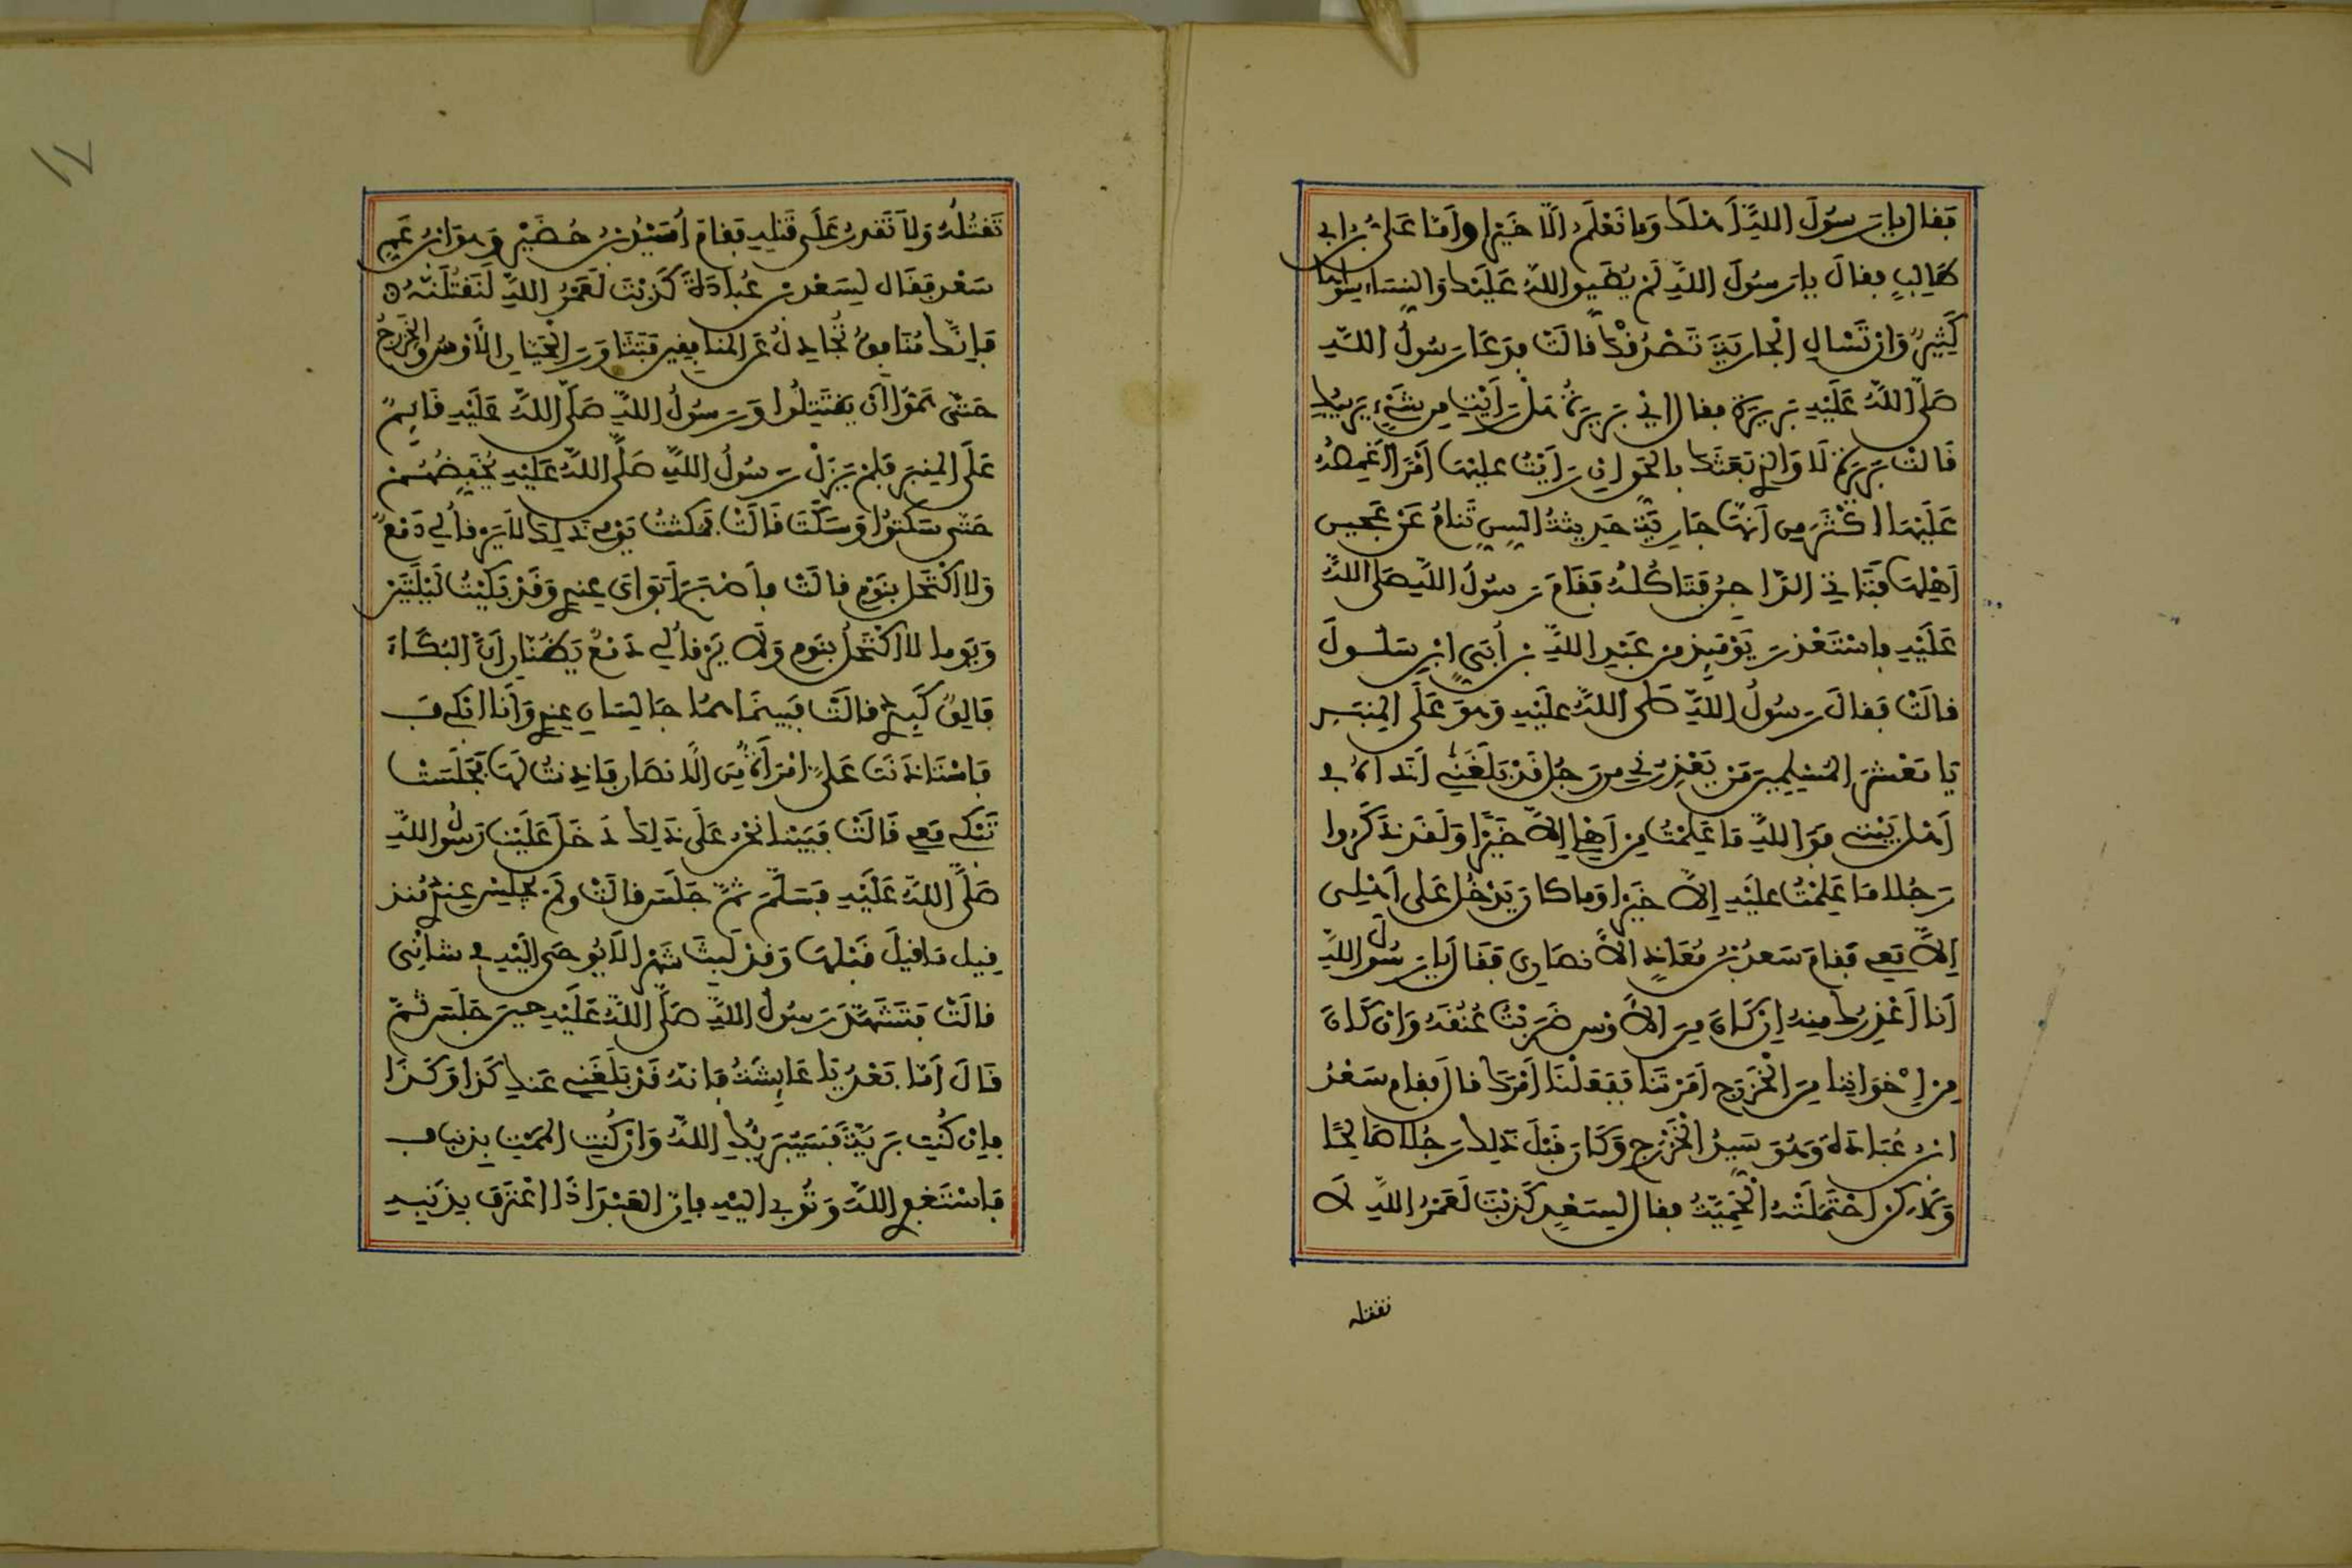 فقال يا رسول الله أهلك وما نعلم الا خيرا وأما علي بن ابي
طالب فقال يا رسول الله لم يضيق الله عليك والنساء سواها
كثير وان تسأل الجارية تصدقك قالت فدعا رسول الله
صلى الله عليه بريرة فقال اي بريرة هل رأيت من شيء يريبك
قالت بريرة لا والذي بعثك بالحق ان رأيت عليها أمرا أغمصه
عليها اكثر من أنها جارية حديثة السن تنام عن عجين
أهلها فتاتي الداجن فتاكله فقام رسول الله صلى الله
عليه فاستعذر يومئذ من عبد الله بن أبي ابن سلول
قالت فقال رسول الله صلى الله عليه وهو على المنبر
يا معشر المسلمين من يعذرني من رجل قد بلغني أذاه في
أهل بيتي فوالله ما علمت من أهلي إلا خيرا ولقد ذكروا
رجلا ما علمت عليه إلا خيرا وما كان يدخل على أهلي
إلا معي فقام سعد بن معاذ الأنصاري فقال يا رسول الله
أنا أعذرك منه إن كان من الأوس ضربت عنقه وان كان
من إخواننا من الخزرج أمرتنا ففعلنا أمرك قال فقام سعد
ابن عبادة وهو سيد الخزرج وكان قبل ذلك رجلا صالحا
ولكن احتملته الحمية فقال لسعد كذبت لعمر الله لا
تقتله
تقتله ولا تقدر على قتله فقام أسيد بن حضير وهو ابن عم
سعد فقال لسعد بن عبادة كذبت لعمر الله لنقتلنه
فإنك منافق تجادل عن المنافقين فتثاور الحيان الأوس والخزرج
حتى هموا أن يقتتلوا ورسول الله صلى الله عليه قائم
على المنبر فلم يزل رسول الله صلى الله عليه يخفضهم
حتى سكتوا وسكت قالت فمكثت يومي ذلك لا يرقأ لي دمع
ولا اكتحل بنوم قالت فأصبح أبواي عندي وقد بكيت ليلتين
ويوما لا اكتحل بنوم ولا يرقأ لي دمع يظنان أن البكاء
فالق كبدي قالت فبينما هما جالسان عندي وأنا ابكي
فاستاذنت علي امرأة من الانصار فاذنت لها فجلست
تبكي معي قالت فبينا نحن على ذلك دخل علينا رسول الله
صلى الله عليه فسلم ثم جلس قالت ولم يجلس عندي منذ
قيل ما قيل قبلها وقد لبث شهرا لا يوحى اليه في شأني
قالت فتشهد رسول الله صلى الله عليه حين جلس ثم
قال أما بعد يا عائشة فانه قد بلغني عنك كذا وكذا
فإن كنت بريئة فسيبريك الله وان كنت الممت بذنب
فاستغفري الله وتوبي اليه فان العبد اذا اعترف بذنبه